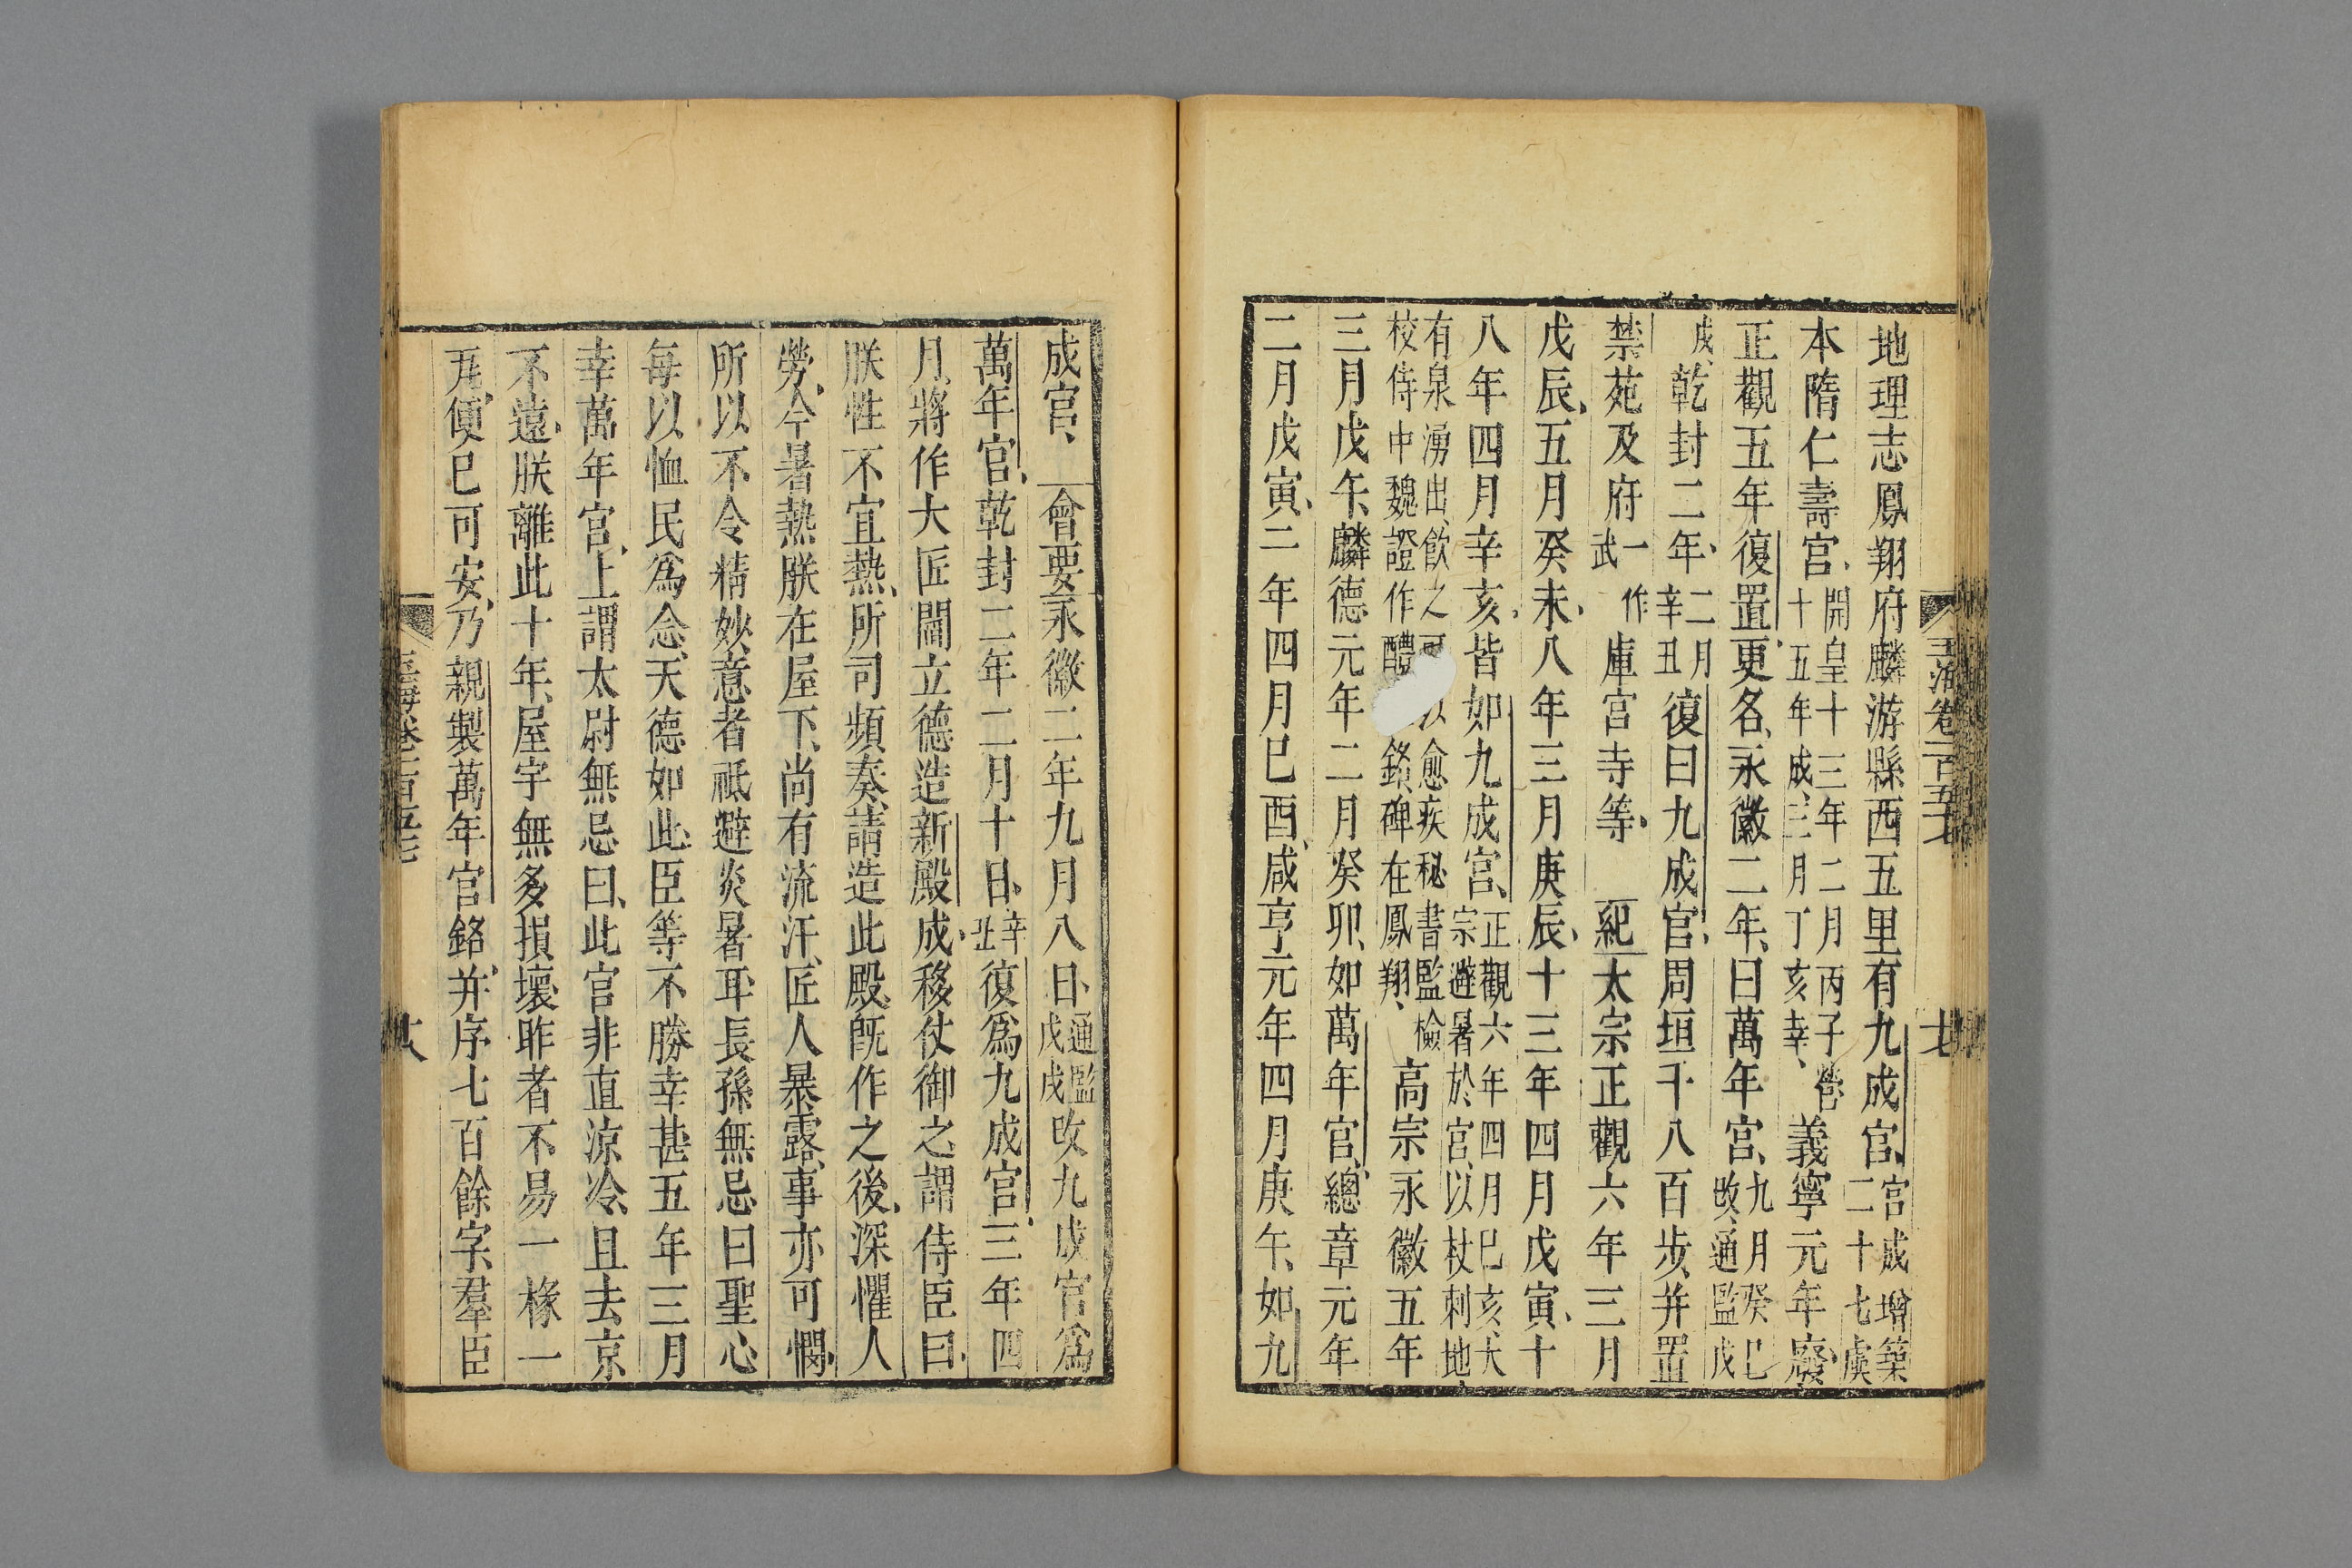 地理志鳳翔府麟游縣西五里有九成宮宮成增築二十七處
本隋仁壽宮開皇十三年二月丙子營十五年成三月丁亥幸義寧元年廢
正觀五年復置更名永徽二年曰萬年宮九月癸巳改通鑑戊
戌乾封二年二月辛丑復曰九成宮周垣千八百步并置
禁苑及府一作武庫宮寺等紀太宗正觀六年三月
戊辰五月癸未八年三月庚辰十三年四月戊寅十
八年四月辛亥皆如九成宮正觀六年四月巳亥太宗避暑於宮以杖刺地
有泉湧出飲之以愈疾秘書監檢校侍中魏證作醴銘碑在鳳翔高宗永徽五年
三月戊午麟德元年二月癸卯如萬年宮總章元年
二月戊寅二年四月巳酉咸亨元年四月庚午如九
玉海卷一百五十七
十七
成宮會要永徽二年九月八日通鑑戊戌改九成宮爲
萬年宮乾封二年二月十日辛丑復爲九成宮三年四
月將作大匠閻立德造新殿成移仗御之謂侍臣曰
朕性不宜熱所司頻奏請造此殿旣作之後深懼人
勞今暑熱朕在屋下尚有流汗匠人暴露事亦可憫
所以不令精妙意者祗避炎暑耳長孫無忌曰聖心
每以恤民爲念天德如此臣等不勝幸甚五年三月
幸萬年宮上謂太尉無忌曰此宮非直涼冷且去京
不遠朕離此十年屋宇無多損壞昨者不易一椽一
瓦便巳可安乃親製萬年宮銘并序七百餘字羣臣